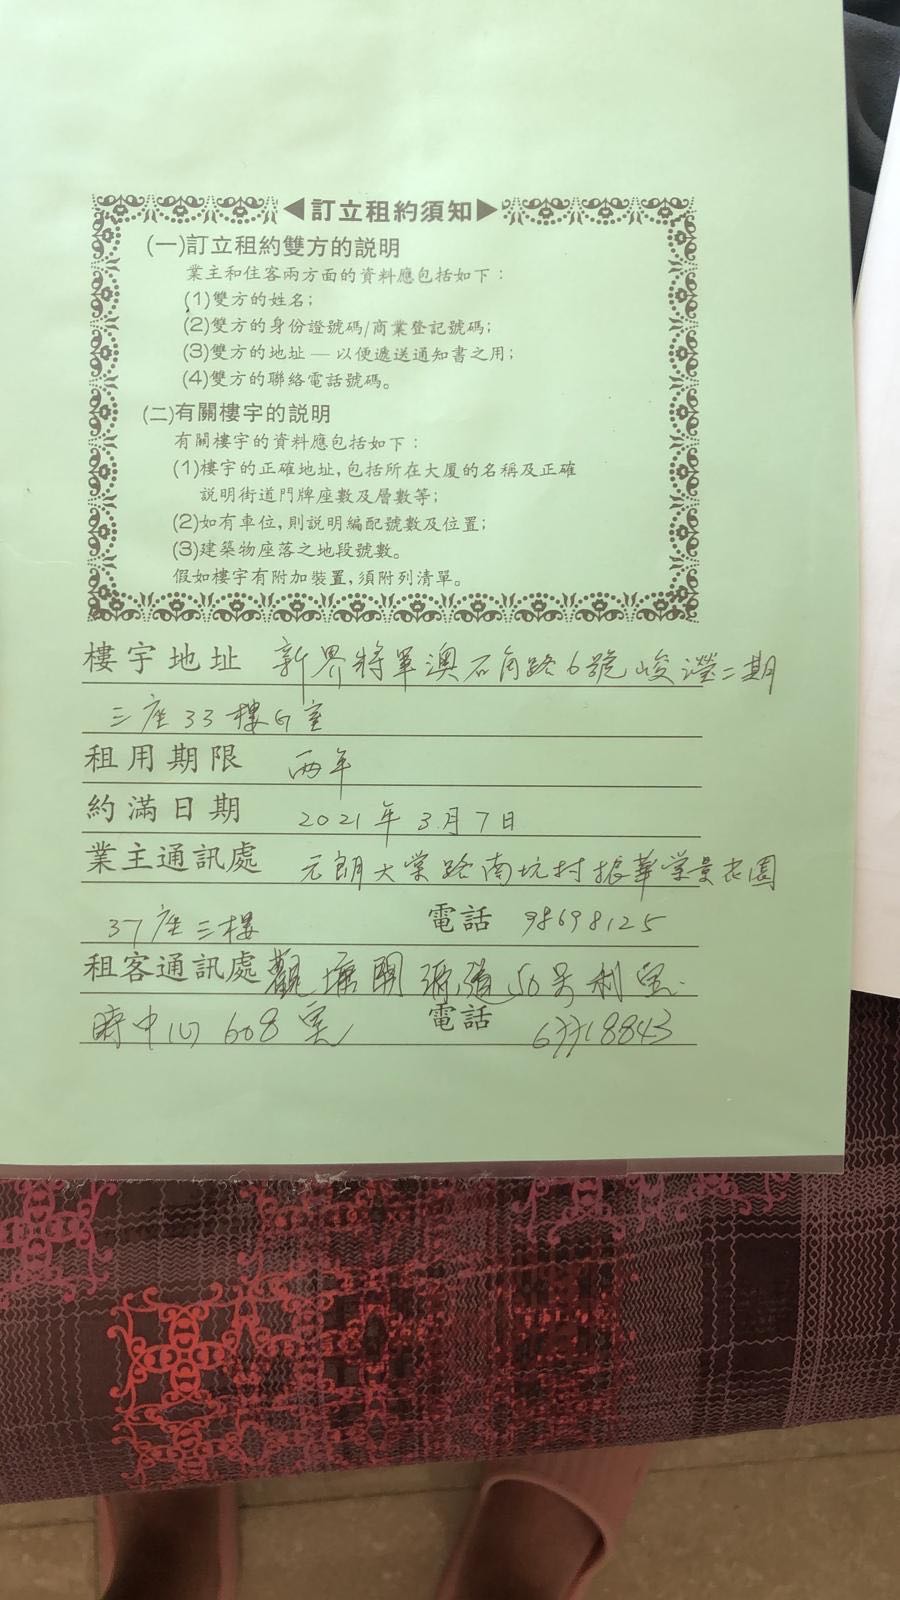 ◀訂立租約須知▶
(一)訂立租約雙方的説明
業主和住客兩方面的資料應包括如下：
(1)雙方的姓名；
(2)雙方的身份證號碼/商業登記號碼；
(3)雙方的地址 — 以便遞送通知書之用；
(4)雙方的聯絡電話號碼。
(二)有關樓宇的説明
有關樓宇的資料應包括如下：
(1)樓宇的正確地址，包括所在大厦的名稱及正確
説明街道門牌座數及層數等；
(2)如有車位，則説明編配號數及位置；
(3)建築物座落之地段號數。
假如樓宇有附加裝置，須附列清單。
樓宇地址 新界將軍澳石角路6號峻瀅二期
三座33樓G室
租用期限 兩年
約滿日期 2021年3月7日
業主通訊處 元朗大棠路南坑村振華學景花園
37座三樓 電話 98698125
租客通訊處 觀塘開源道50号利宝
時中心608室 電話